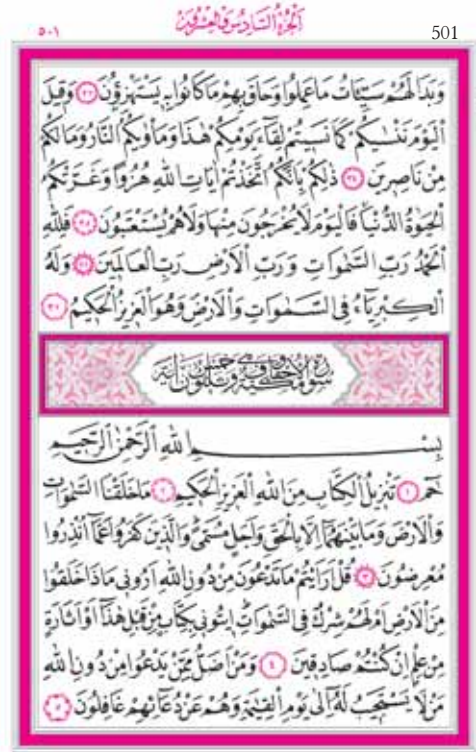 الجزء السادس والعشرون
٥٠١
501
وَبَدَا لَهُمْ سَيِّئَاتُ مَا عَمِلُوا وَحَاقَ بِهِمْ مَا كَانُوا بِهِ يَسْتَهْزِؤُنَ ﴿٣٣﴾ وَقِيلَ
الْيَوْمَ نَنْسٰيكُمْ كَمَا نَسِيتُمْ لِقَاءَ يَوْمِكُمْ هٰذَا وَمَأْوٰيكُمُ النَّارُ وَمَا لَكُمْ
مِنْ نَاصِرِينَ ﴿٣٤﴾ ذٰلِكُمْ بِاَنَّكُمُ اتَّخَذْتُمْ اٰيَاتِ اللّٰهِ هُزُوًا وَغَرَّتْكُمُ
الْحَيٰوةُ الدُّنْيَا فَالْيَوْمَ لَا يُخْرَجُونَ مِنْهَا وَلَا هُمْ يُسْتَعْتَبُونَ ﴿٣٥﴾ فَلِلّٰهِ
الْحَمْدُ رَبِّ السَّمٰوَاتِ وَرَبِّ الْاَرْضِ رَبِّ الْعَالَمِينَ ﴿٣٦﴾ وَلَهُ
الْكِبْرِيَاءُ فِي السَّمٰوَاتِ وَالْاَرْضِ وَهُوَ الْعَزِيزُ الْحَكِيمُ ﴿٣٧﴾
سورة الاحقاف مكية وهي خمس وثلثون اية
بِسْمِ اللّٰهِ الرَّحْمٰنِ الرَّحِيمِ
حٰمٓ ﴿١﴾ تَنْزِيلُ الْكِتَابِ مِنَ اللّٰهِ الْعَزِيزِ الْحَكِيمِ ﴿٢﴾ مَا خَلَقْنَا السَّمٰوَاتِ
وَالْاَرْضَ وَمَا بَيْنَهُمَا اِلَّا بِالْحَقِّ وَاَجَلٍ مُسَمًّى وَالَّذِينَ كَفَرُوا عَمَّا اُنْذِرُوا
مُعْرِضُونَ ﴿٣﴾ قُلْ اَرَاَيْتُمْ مَا تَدْعُونَ مِنْ دُونِ اللّٰهِ اَرُونِي مَاذَا خَلَقُوا
مِنَ الْاَرْضِ اَمْ لَهُمْ شِرْكٌ فِي السَّمٰوَاتِ اِيتُونِي بِكِتَابٍ مِنْ قَبْلِ هٰذَا اَوْ اَثَارَةٍ
مِنْ عِلْمٍ اِنْ كُنْتُمْ صَادِقِينَ ﴿٤﴾ وَمَنْ اَضَلُّ مِمَّنْ يَدْعُوا مِنْ دُونِ اللّٰهِ
مَنْ لَا يَسْتَجِيبُ لَهُ اِلٰى يَوْمِ الْقِيٰمَةِ وَهُمْ عَنْ دُعَائِهِمْ غَافِلُونَ ﴿٥﴾